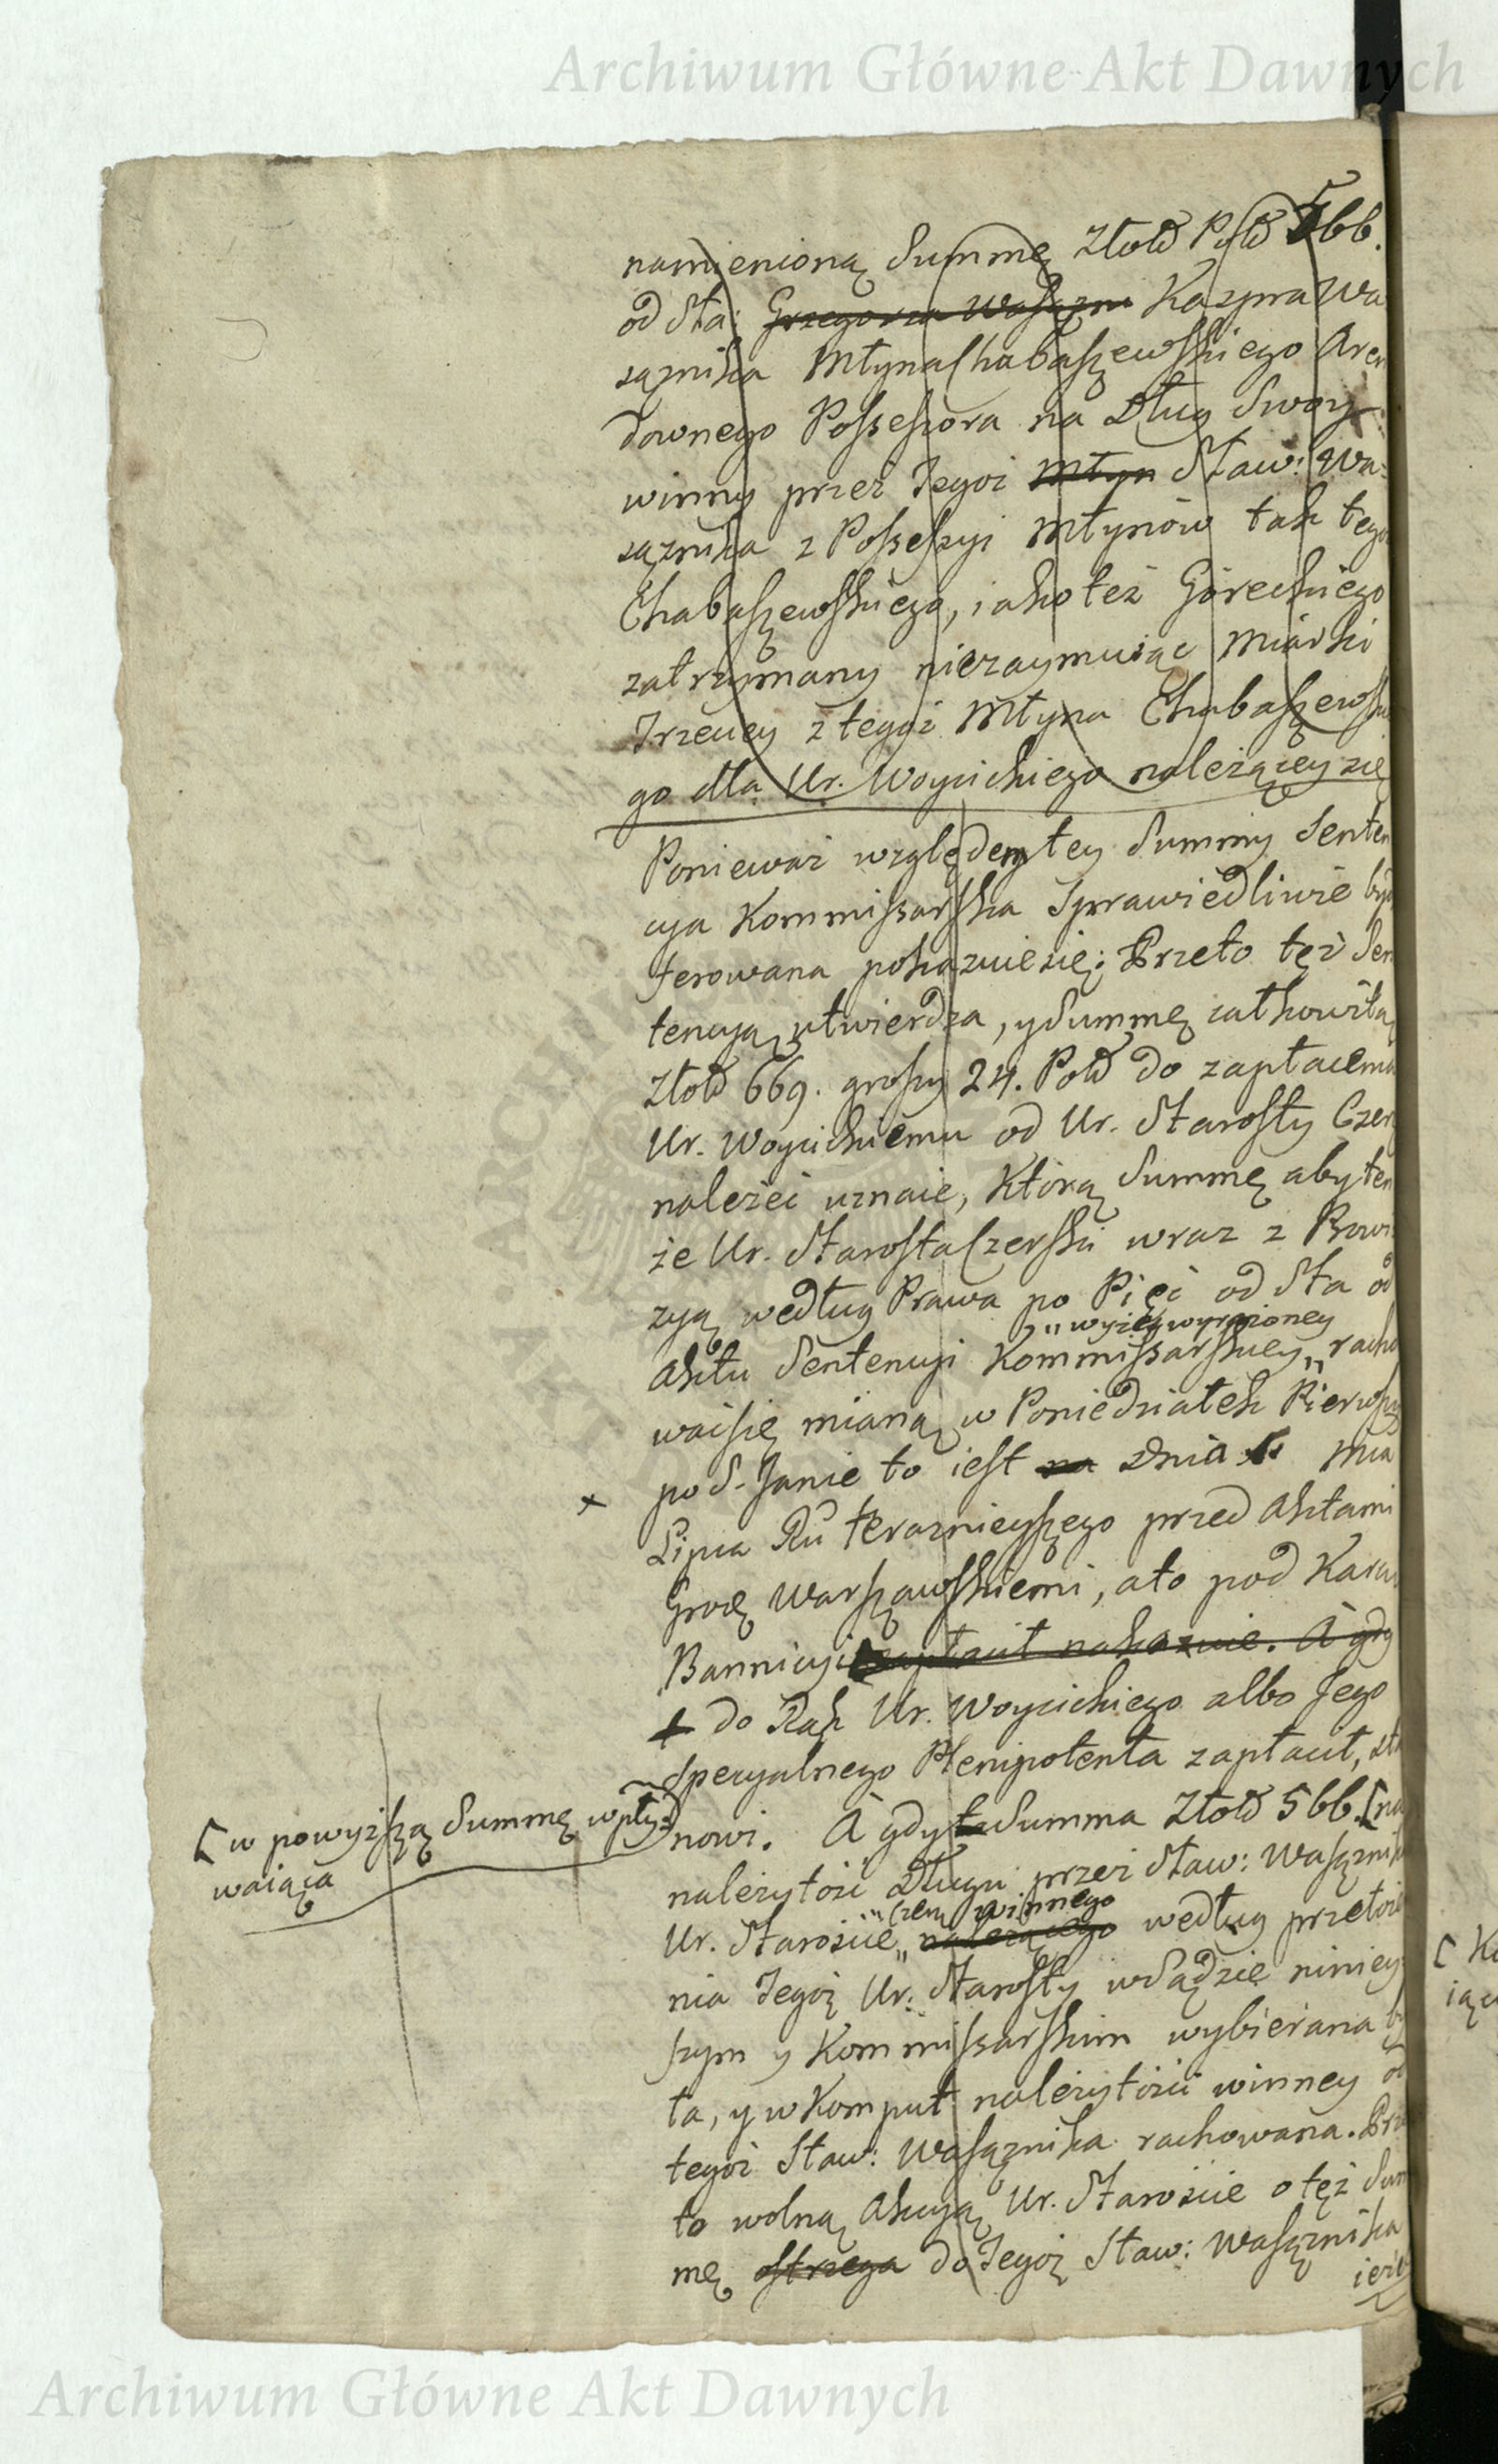 Archiwum Główne Akt Dawnych
namienioną Summę Złotd Pold 566.
od Sta: Grzegorza Wasązni Kazpra Wa
sąznika Młyna Chabaszewskiego Aren
downego Possessora na Dług Swoy
winny przez Tegoż Młyn Staw: Wa-
sąznika z Possessyi Młynów tak tego
Chabaszewskiego, iako też Góreckiego
zatrzymany niezaymuiąc Miarki
Trzeciey z tegoż Młyna Chabaszewskie
go dla Ur. Woycickiego należącey się
Ponieważ względem tey Summy Senten
cya Kommissarska Sprawiedliwie bydź
ferowana pokazuie się; Przeto tęż Sen
tencyą utwierdza, y Summę całkowitą
Złotd 669. groszy 24. Pold do zapłacenia
Ur. Woycickiemu od Ur. Starosty Czer
należeć uznaie, Którą Summę aby ten
że Ur. Starosta Czerski wraz z Prowi
zyą według Prawa po Pięć od Sta od
„ wyżey wyrażoney
Aktu Sentencyi Kommissarskiey „ racho
wać się mianą w Poniedziałek Pierwszy
x po S. Janie to iest na Dnia Mca
Lipca Ru teraznieyszego przed Aktami
Grod Warszawskiemi, a to pod Karą
Bannicyi zapłacił nakazuie. A gdy
+ do Rąk Ur. Woycickiego albo Jego
Specyalnego Plenipotenta zapłacił, sta
nowi. A gdy ta Summa Złotd 566. [na
[ w powyższą Summę wpły-
waiąca
należytość Długu przez Staw: Wasąznika
„ Czer. winnego
Ur. Staroście „ należącego według przełoże
nia Tegoż Ur. Starosty w Sądzie niniey
szym y Kommissarskim wybierana by
ta, y w Komput należytości winney od
tegoż Staw: Wasąznika rachowana. Prze
to wolną Akcyą Ur. Staroście o tęż Sum
mę ostrzega do Tegoż Staw: Wasąznika
Archiwum Główne Akt Dawnych